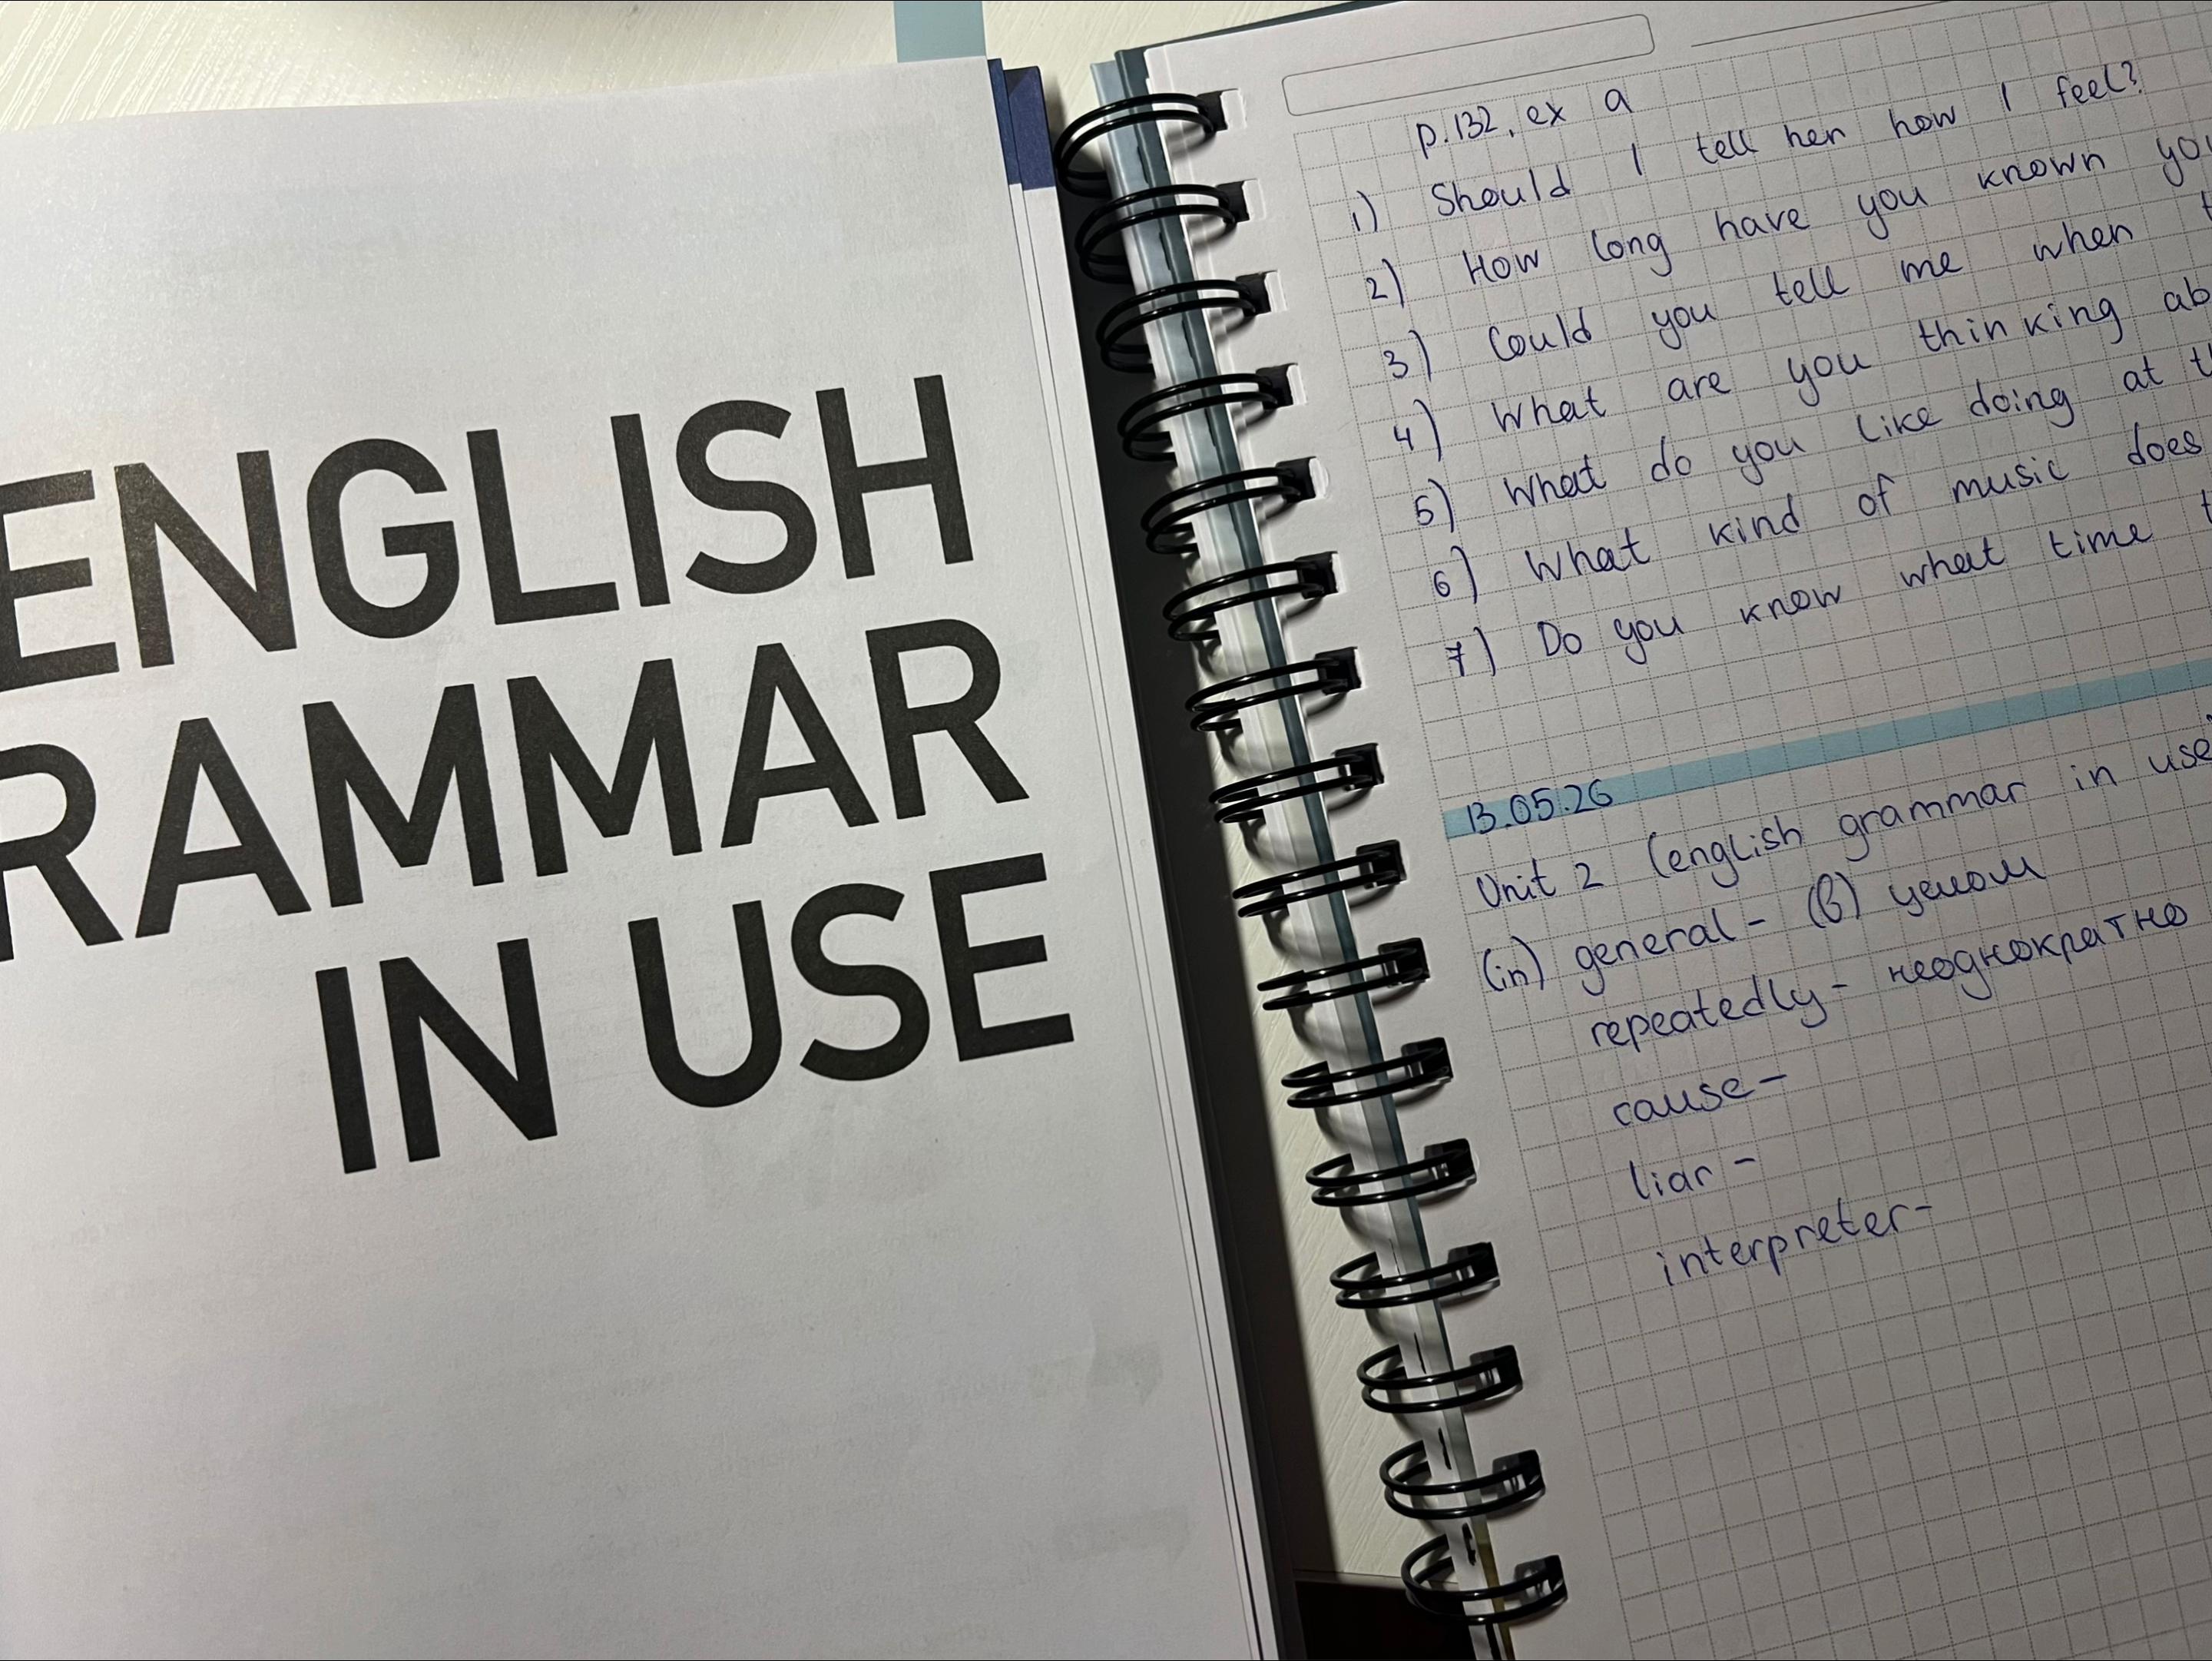 ENGLISH
RAMMAR
IN USE
p.132, ex a
1) Should I tell her how I feel?
2) How long have you known
3) Could you tell me when
4) What are you thinking
5) What do you like doing at
6) What kind of music does
7) Do you know what time
13.05.26
Unit 2 (english grammar in use
(in) general - (в) целом
repeatedly - неоднократно
cause -
liar -
interpreter -